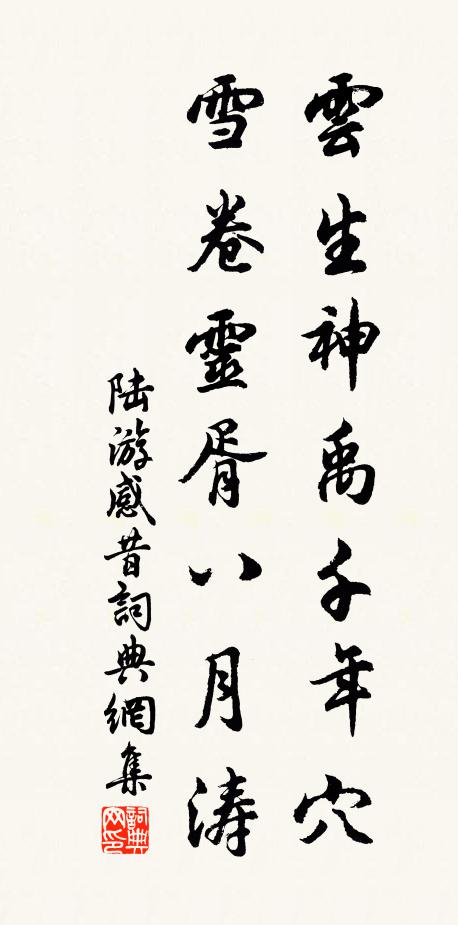 雲生神禹千年穴
雪卷靈胥八月濤
陆游感昔詞典網集
詞典网印